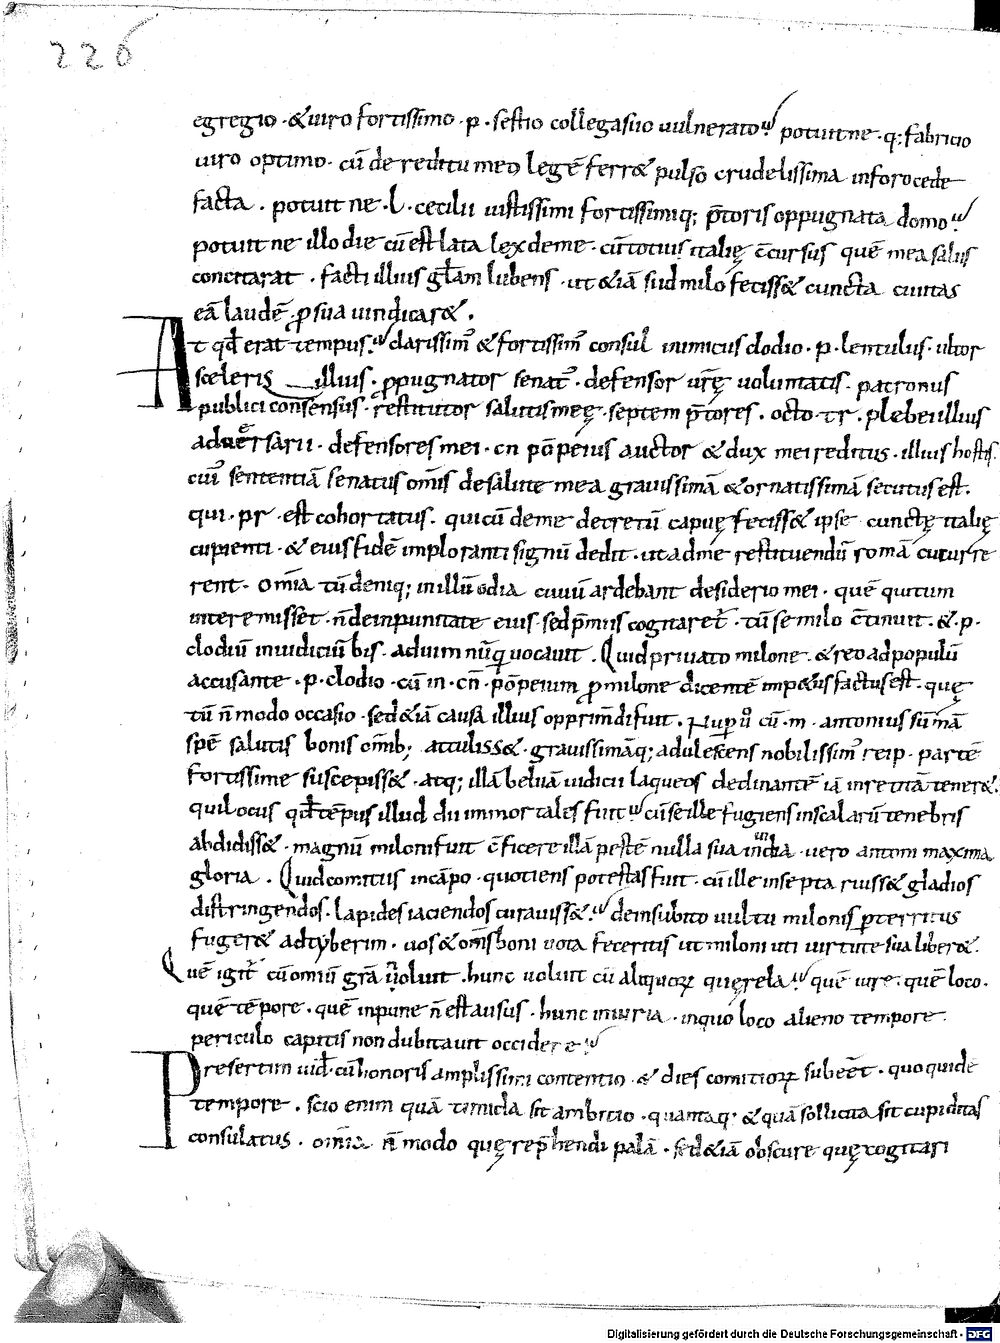 226
egregio · & uiro fortissimo · p · sestio collega suo uulnerato? potuit ne · q; fabricio
uiro optimo · cū de reditu meo legē ferr& pulso crudelissima in foro cede
facta · potuit ne · l · cecilii iustissimi fortissimiq; p̄toris oppugnata domo?
potuit ne illo die cū est lata lex de me · cū totius italię c̄cursus quē mea salus
concitarat · facti illius gl̄am lubens · ut &iā si id milo feciss& cuncta ciuitas
eā laudē ꝓ sua uindicar& ·
At qd̄ erat tempus? clarissim᷒ & fortissim᷒ consul inimicus clodio · p · lentulus · ultor
sceleris illius · ꝓpugnator senat᷒ · defensor ur̄ę uoluntatis · patronus
publici consensus · restitutor salutis meę · septem p̄tores · octo · tr · plebei illius
aduersarii · defensores mei · cn pōpeius auctor & dux mei reditus · illius hostis ·
cui᷒ sententiā senatus om̄is de salute mea grauissimā & ornatissimā secutus est ·
qui · pr · est cohortatus · qui cū de me decretū capuę feciss& ipse cunctę italię
cupienti · & eius fidē imploranti signū dedit · ut ad me restituendū romā cucurre
rent · om̄ia tū deniq; in illū odia ciuiū ardebant desiderio mei · quē qui tum
interemisset · n̄ de inpunitate eius · sed p̄miis cogitaret᷑ · tū se milo c̄tinuit · & · p ·
clodiū in iudiciū bis · ad uim nūq̄ uocauit · Quid priuato milone · & reo ad populū
accusante · p · clodio · cū in · cn · pōpeium ꝓ milone dicentē imp&us factus est · quę
tū n̄ modo occasio · sed &iā causa illius opprim̄di fuit · Nuꝑ u͛ cū · m · antonius sūmā
spē salutis bonis om̄ib; attuliss& · grauissimāq; adulescens nobilissim᷒ rei p · partē
fortissime suscepiss& · atq; illā beluā iudicii laqueos declinantē iā inretitā tener& ·
qui locus qd̄ tēpus illud dii immortales fuit? cū se ille fugiens in scalarū tenebris
abdidiss& · magnū miloni fuit c̄ficere illā pestē nulla sua inuidia · uero antoni maxima
gloria · Quid comitiis in cāpo · quotiens potestas fuit · cū ille in septa ruiss& gladios
distringendos · lapides iaciendos curauiss&? dein subito uultu milonis ꝑterritus
fuger& ad tyberim · uos & om̄s boni uota feceritis ut miloni uti uirtute sua liber& ·
Quē igit᷑ cū omniū gr̄a n̄ uoluit · hunc uoluit cū aliquoꝝ querela? quē iure · quē loco ·
quē tēpore · quē inpune n̄ est ausus · hunc iniuria · iniquo loco alieno tempore ·
periculo capitis non dubitauit occidere?
Presertim iud̄ · cū honoris amplissimi contentio · & dies comitioꝝ subeēt · quo quidē
tempore · scio enim quā timida sit ambitio · quantaq; & quā sollicita sit cupiditas
consulatus · om̄ia n̄ modo quę rep̄hendi palā · sed &iā obscure quę cogitari
Digitalisierung gefördert durch die Deutsche Forschungsgemeinschaft - DFG